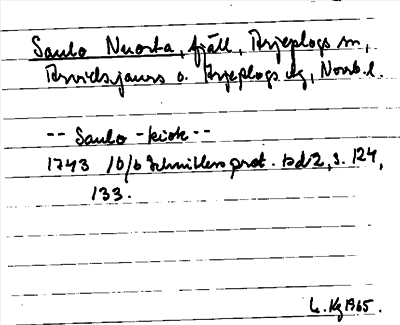 Saulo Nuorta, fjäll, Arjeplogs sn,
Arvidsjaurs o. Arjeplogs dg, Norrb. l.
-- Saulo - kiok --
1743 10/6 Schnitlers prot. bd 2, s. 124,
133.
L. Kg 1965.